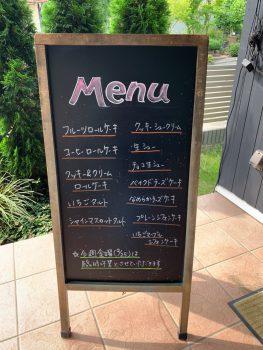 Menu
フルーツロールケーキ
コーヒーロールケーキ
クッキー&クリーム
ロールケーキ
いちごタルト
シャインマスカットタルト
クッキーシュークリーム
生シュー
チョコ生シュー
ベイクドチーズケーキ
なめらかチーズケーキ
プレーンシフォンケーキ
シフォンケーキ
☆今週金曜は
臨時休業とさせていただきます